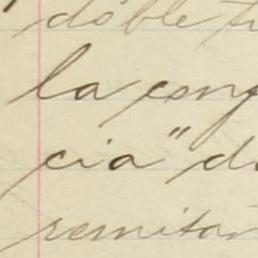 doble
la conf
cia" d
remitan